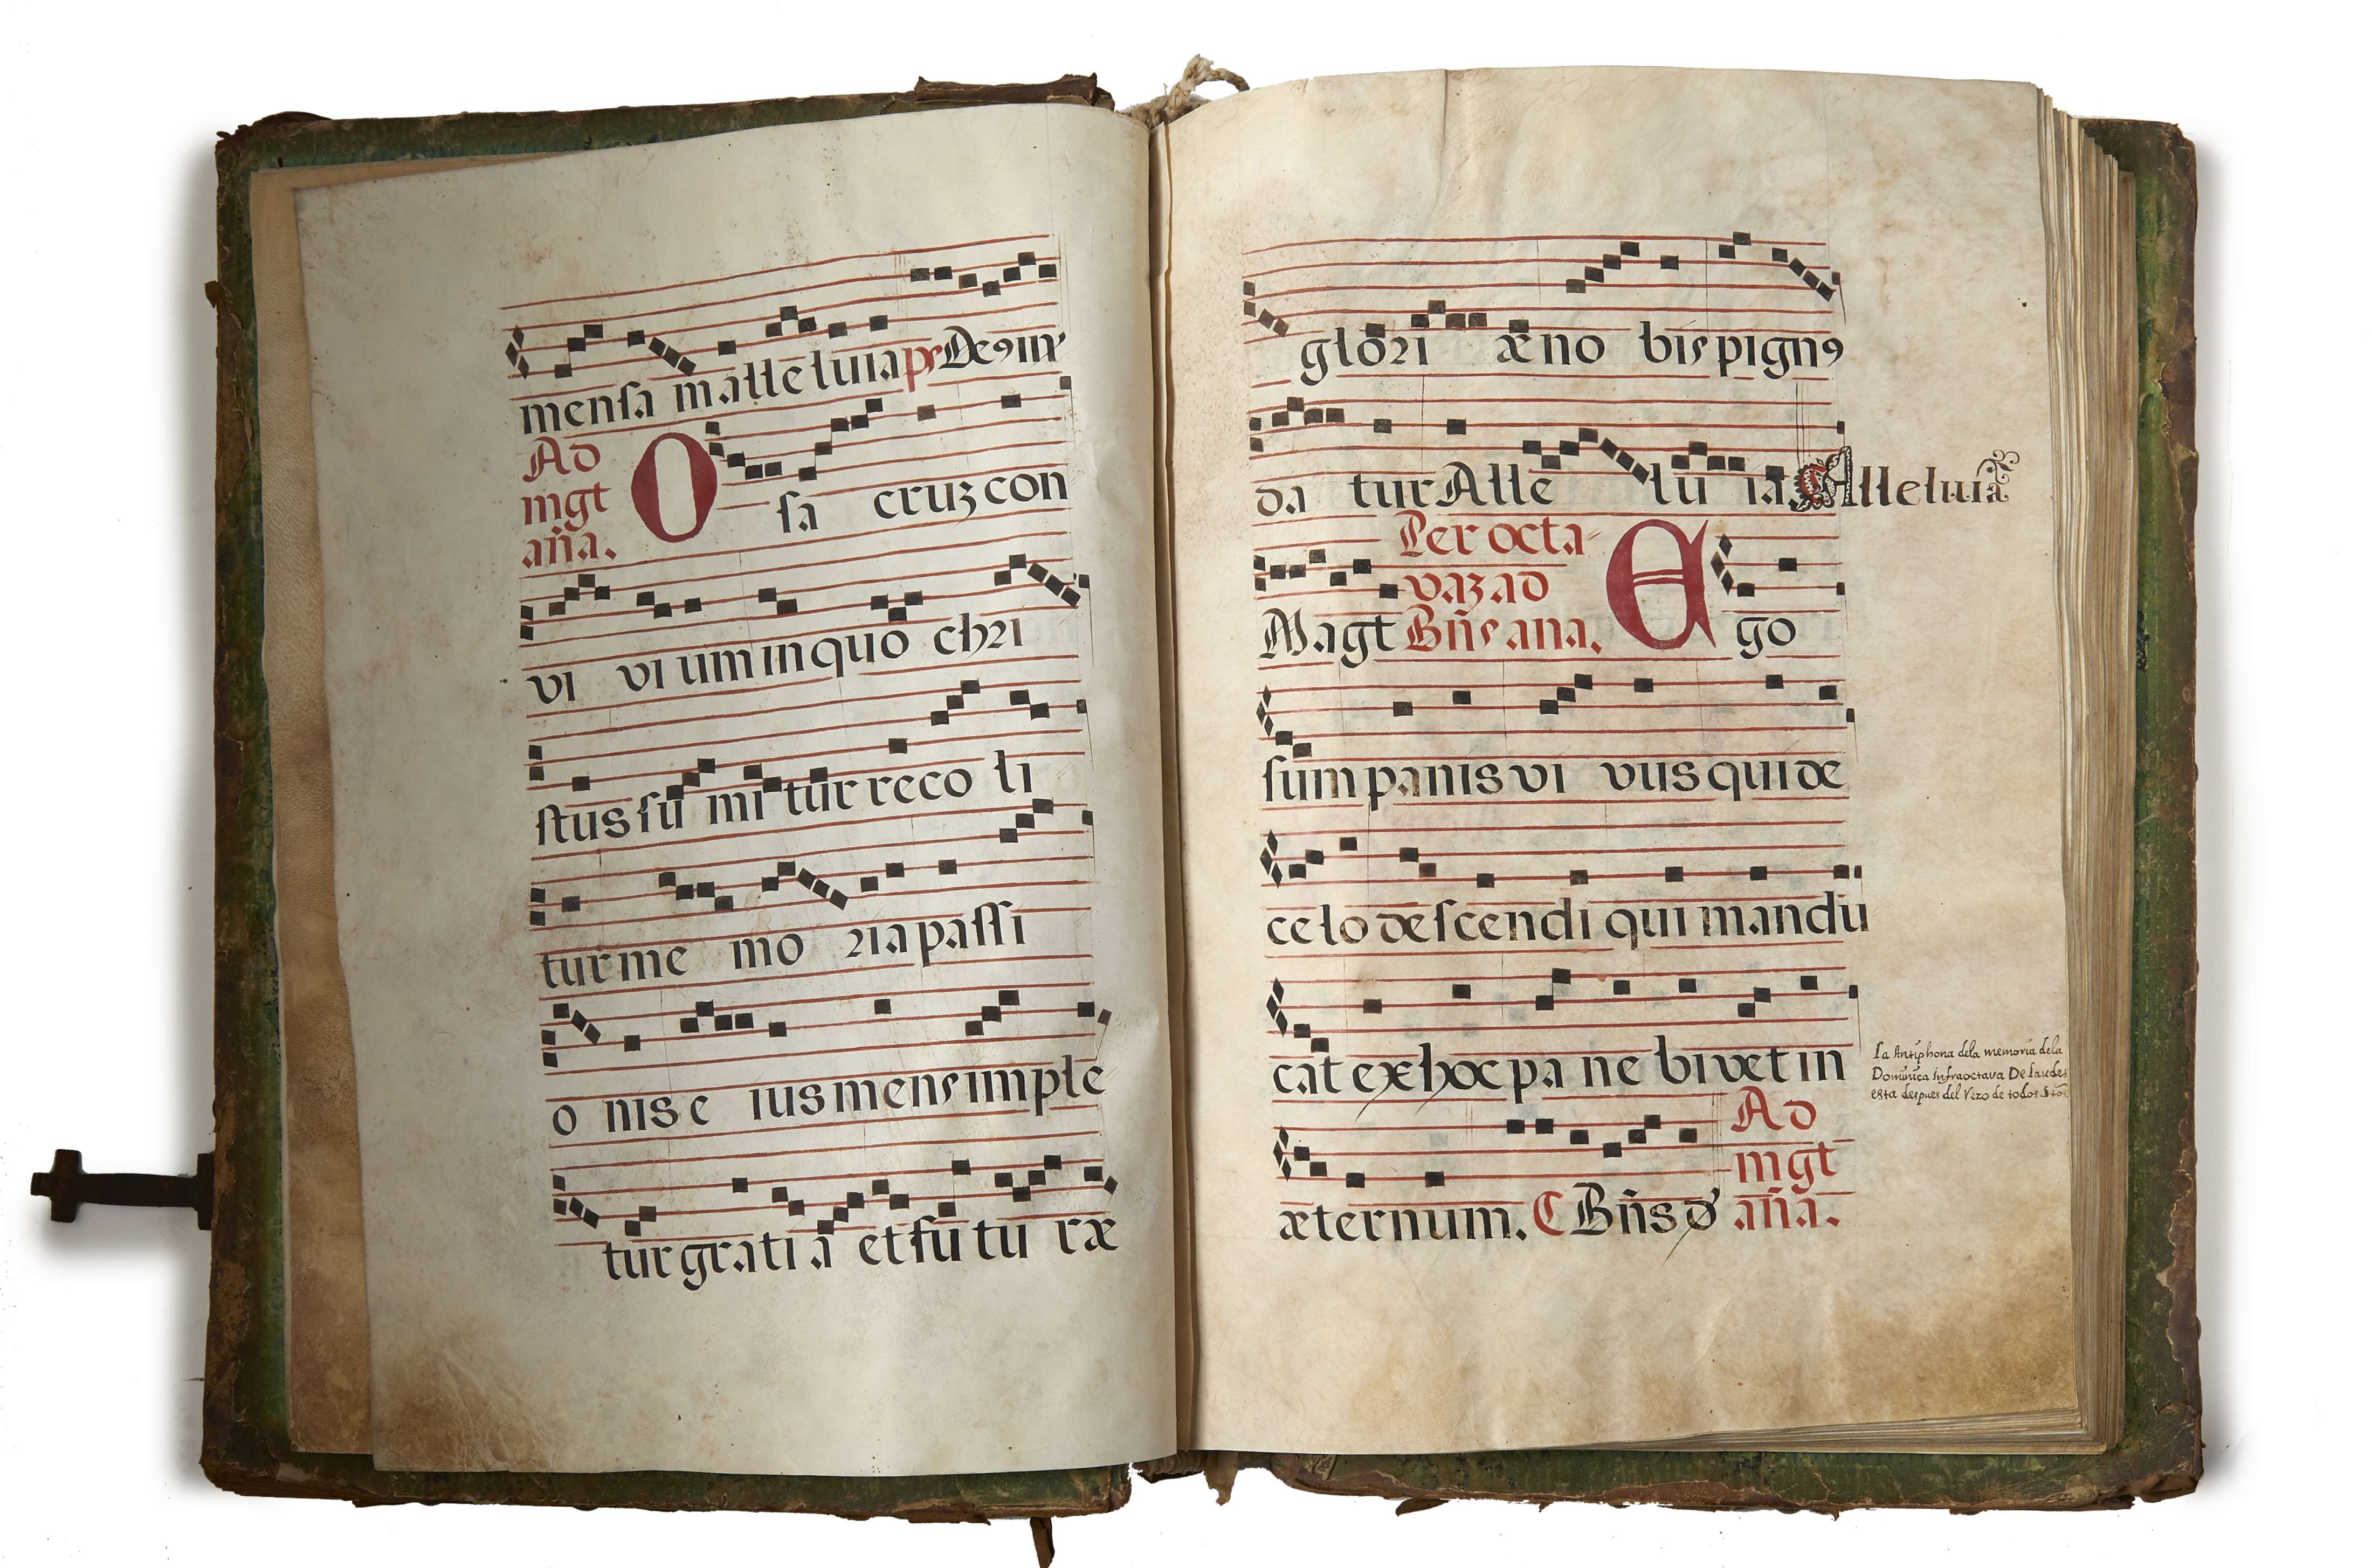 mensa m alle luia ps De9 in
Ad
mgt
aña.
O sa cruz con
vi vi um in quo chri
stus su mi tur reco li
tur me mo ria passi
o nis e ius mens imple
tur grati a et fu tu ræ
glori æ no bis pign9
da tur Alle lu ia. Alleluia
Per octa
vaz ad
Magt Bñs ana. E go
sum panis vi vus qui de
celo descendi qui mandu
cat ex hoc pa ne bivet in
La Antiphona dela memoria dela
Dominica infraoctava De Laudes
esta despues del Vezo de todos
æternum. C Bñs
Ad
mgt
aña.